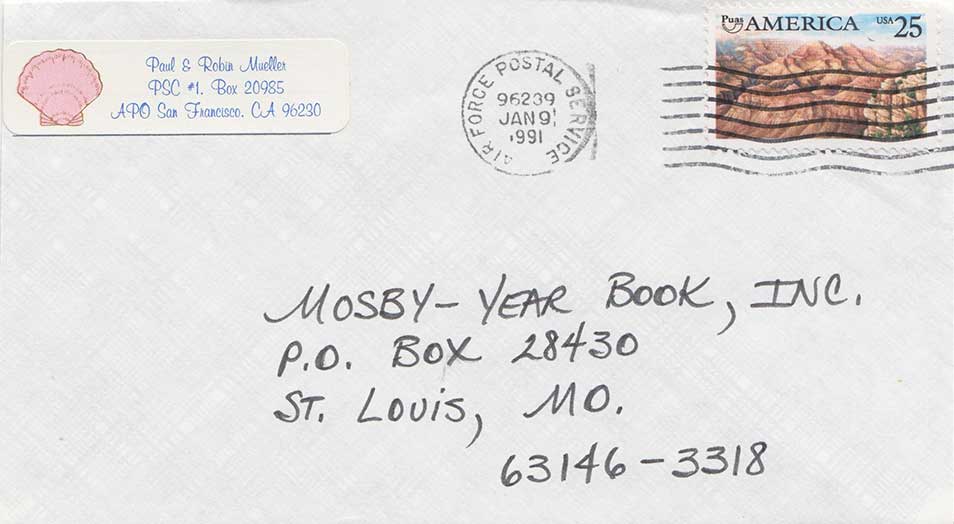 Paul & Robin Mueller
PSC #1. Box 20985
APO San Francisco. CA 96230
AIR FORCE POSTAL SERVICE
96239
JAN 9
1991
Puas AMERICA USA 25
MOSBY-YEAR BOOK, INC.
P.O. BOX 28430
ST. LOUIS, MO.
63146-3318